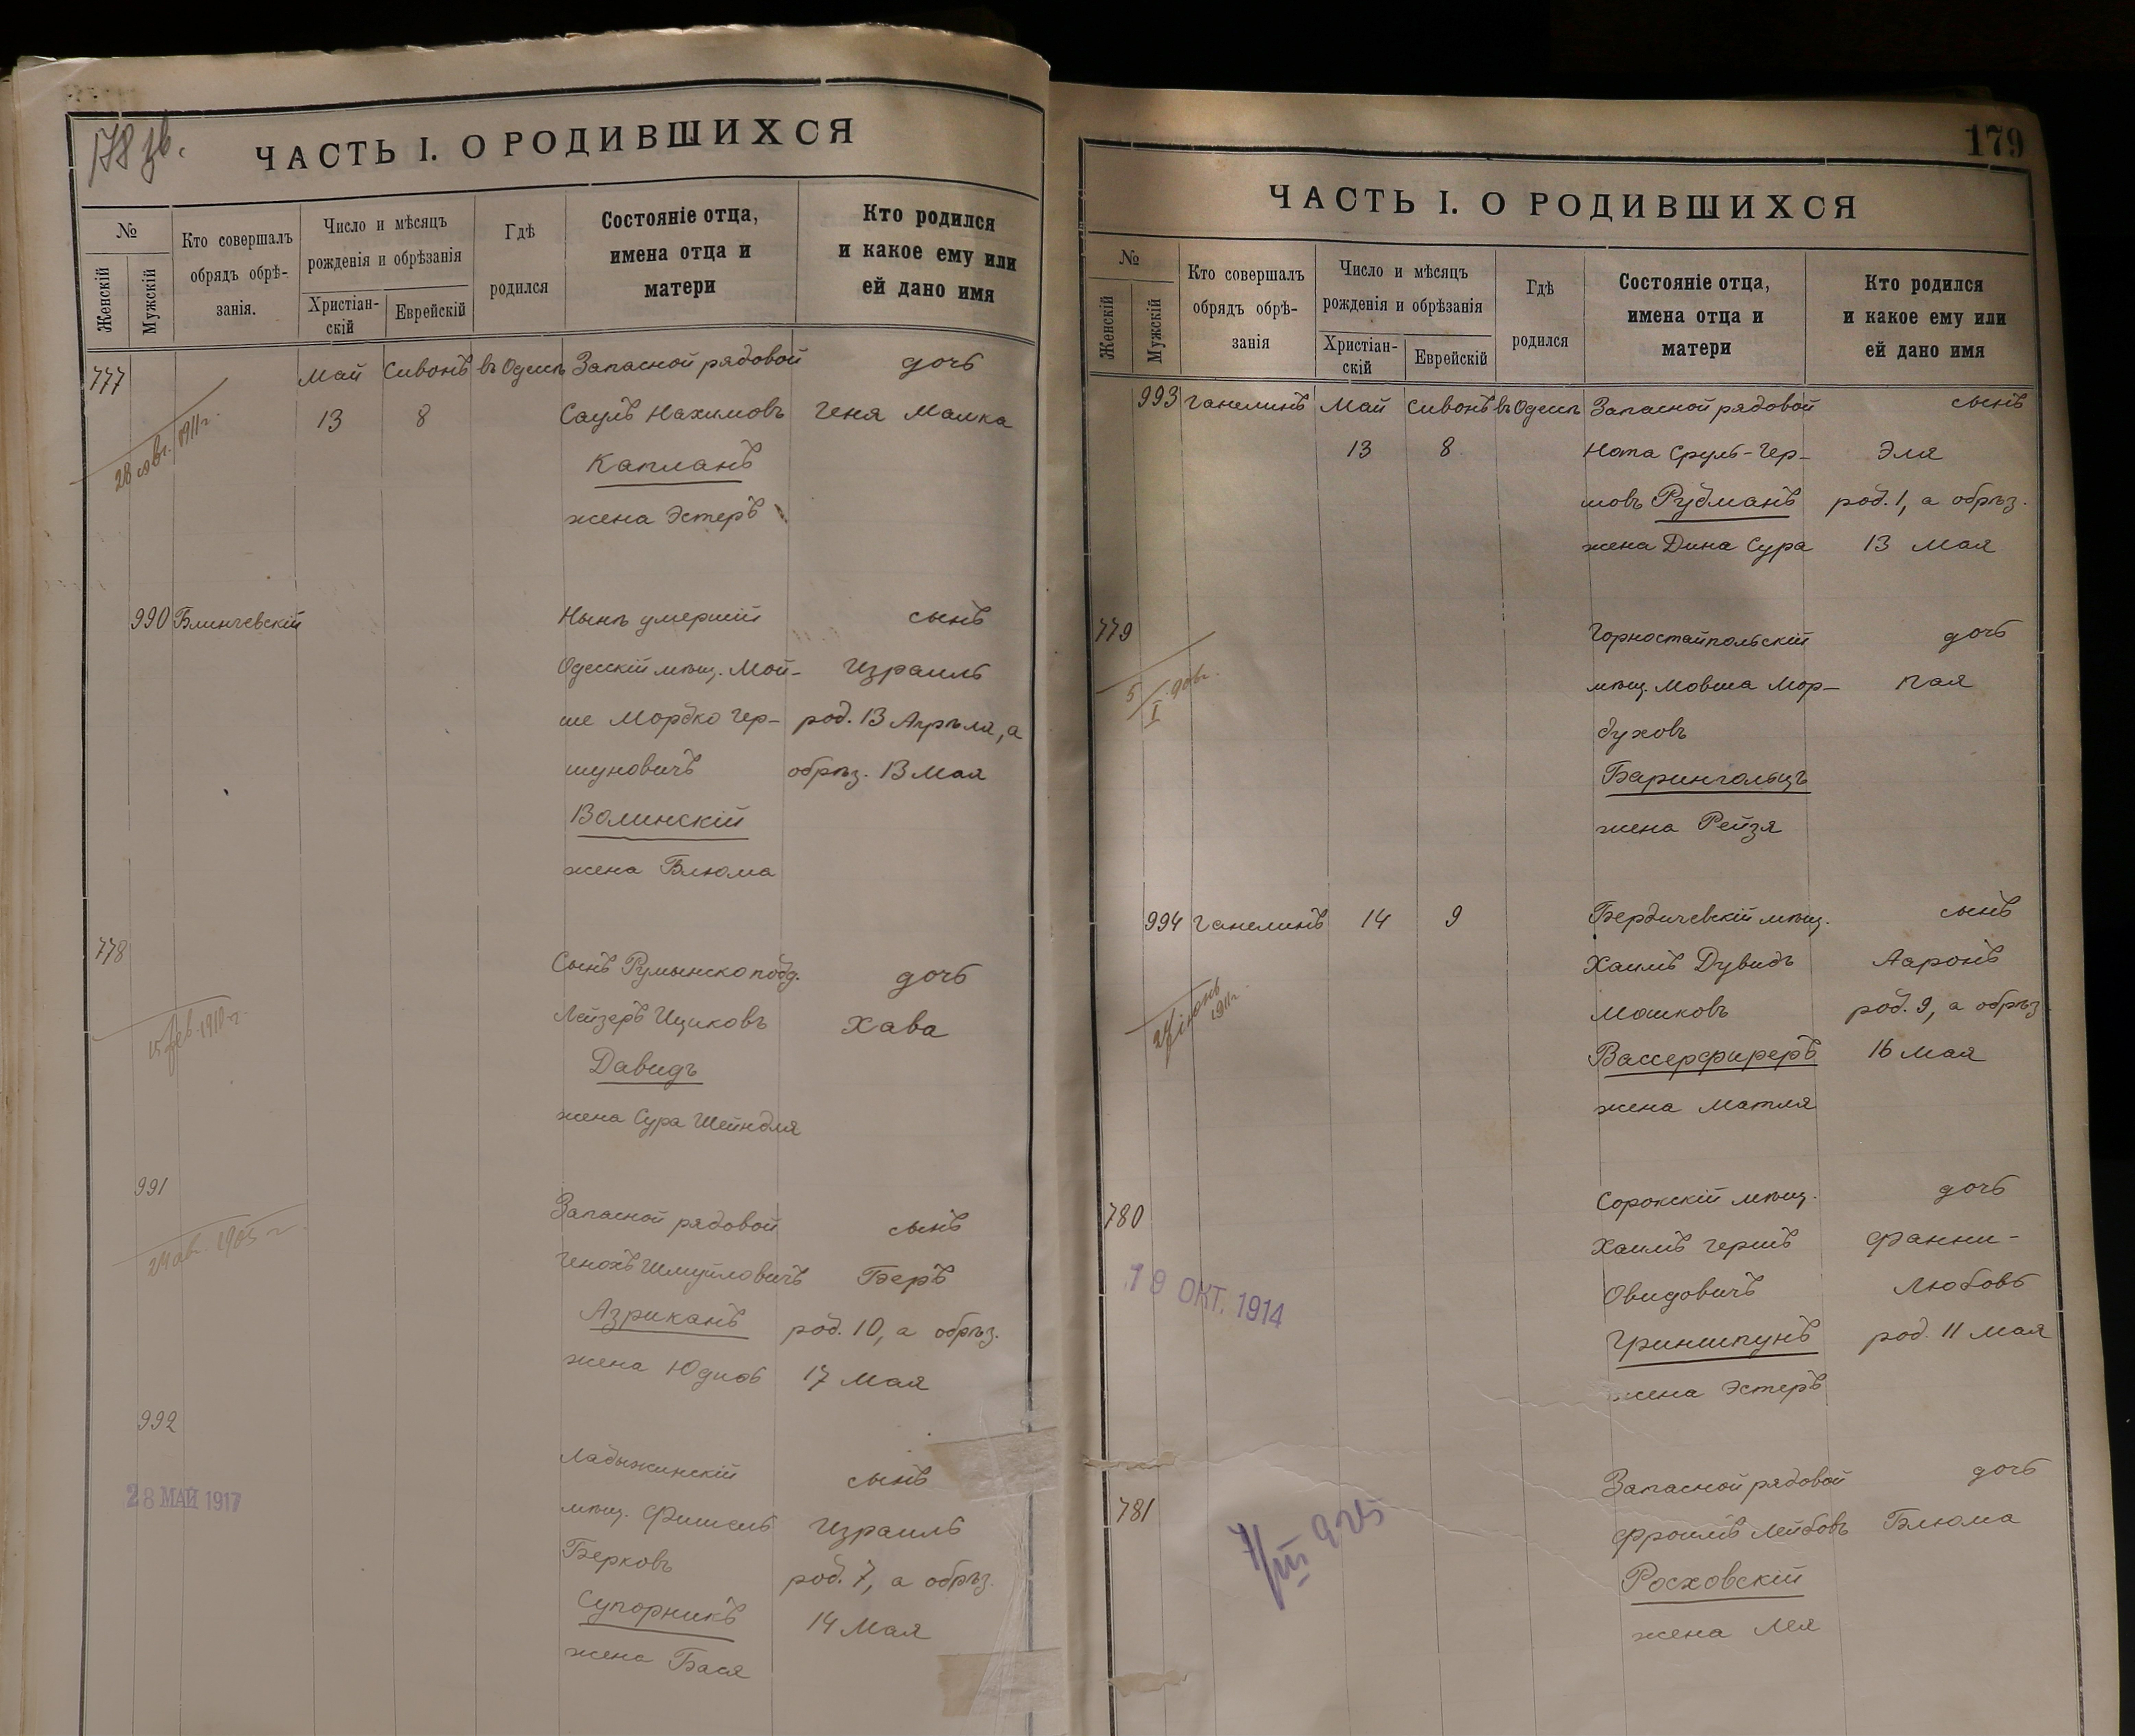 178 зв.
ЧАСТЬ I. О РОДИВШИХСЯ
№
Женскій
Мужскій
Кто совершалъ
обрядъ обрѣ-
занія.
Число и мѣсяцъ
рожденія и обрѣзанія
Христіан-
скій
Еврейскій
Гдѣ
родился
Состояніе отца,
имена отца и
матери
Кто родился
и какое ему или
ей дано имя
777 Май Сивонъ въ Одессѣ Запасной рядовой дочь
13 8 Саулъ Нахимовъ Геня Малка
28 1911 г.
Капланъ
жена Эстеръ
990 Блинчевскій Нынѣ умершій сынъ
Одесскій мѣщ. Мой- Израиль
ше Мордко Гер- род. 13 Апрѣля, а
шуновичъ обрѣз. 13 Мая
Волинскій
жена Блюма
778 Сынъ Румынско под. дочь
Лейзеръ Ициковъ Хава
15 фев. 1910 г.
Давидъ
жена Сура Шейндля
991 Запасной рядовой сынъ
24 ав. 1905 г.
Генохъ Шмуйловичъ Беръ
Азриканъ род. 10, а обрѣз.
жена Юдисъ 17 Мая
992 Ладыжинскій сынъ
28 МАЙ 1917
мѣщ. Фишель Израиль
Берковъ род. 7, а обрѣз.
Супорникъ 14 Мая
жена Бася
179
ЧАСТЬ I. О РОДИВШИХСЯ
№
Женскій
Мужскій
Кто совершалъ
обрядъ обрѣ-
занія
Число и мѣсяцъ
рожденія и обрѣзанія
Христіан-
скій
Еврейскій
Гдѣ
родился
Состояніе отца,
имена отца и
матери
Кто родился
и какое ему или
ей дано имя
993 Ганелинъ Май Сивонъ въ Одессѣ Запасной рядовой сынъ
13 8 Нота Сруль-Гер- Эля
шовъ Рудманъ род. 1, а обрѣз.
жена Дина Сура 13 Мая
779 Горностайпольскій дочь
5/I 908 г.
мѣщ. Мовша Мор- Пая
духовъ
Барингольцъ
жена Рейзя
994 Ганелинъ 14 9 Бердичевскій мѣщ. сынъ
Хаимъ Дувидъ Ааронъ
1911 г.
Мошковъ род. 9, а обрѣз.
Вассерфиреръ 16 Мая
жена Матля
780 Сорокскій мѣщ. дочь
Хаимъ Гершъ Фанни-
19 ОКТ. 1914
Овидовичъ Любовь
Гриншпунъ род. 11 Мая
жена Эстеръ
781 Запасной рядовой дочь
7/III 925
Фроимъ Лейбовъ Блюма
Росховскій
жена Лея